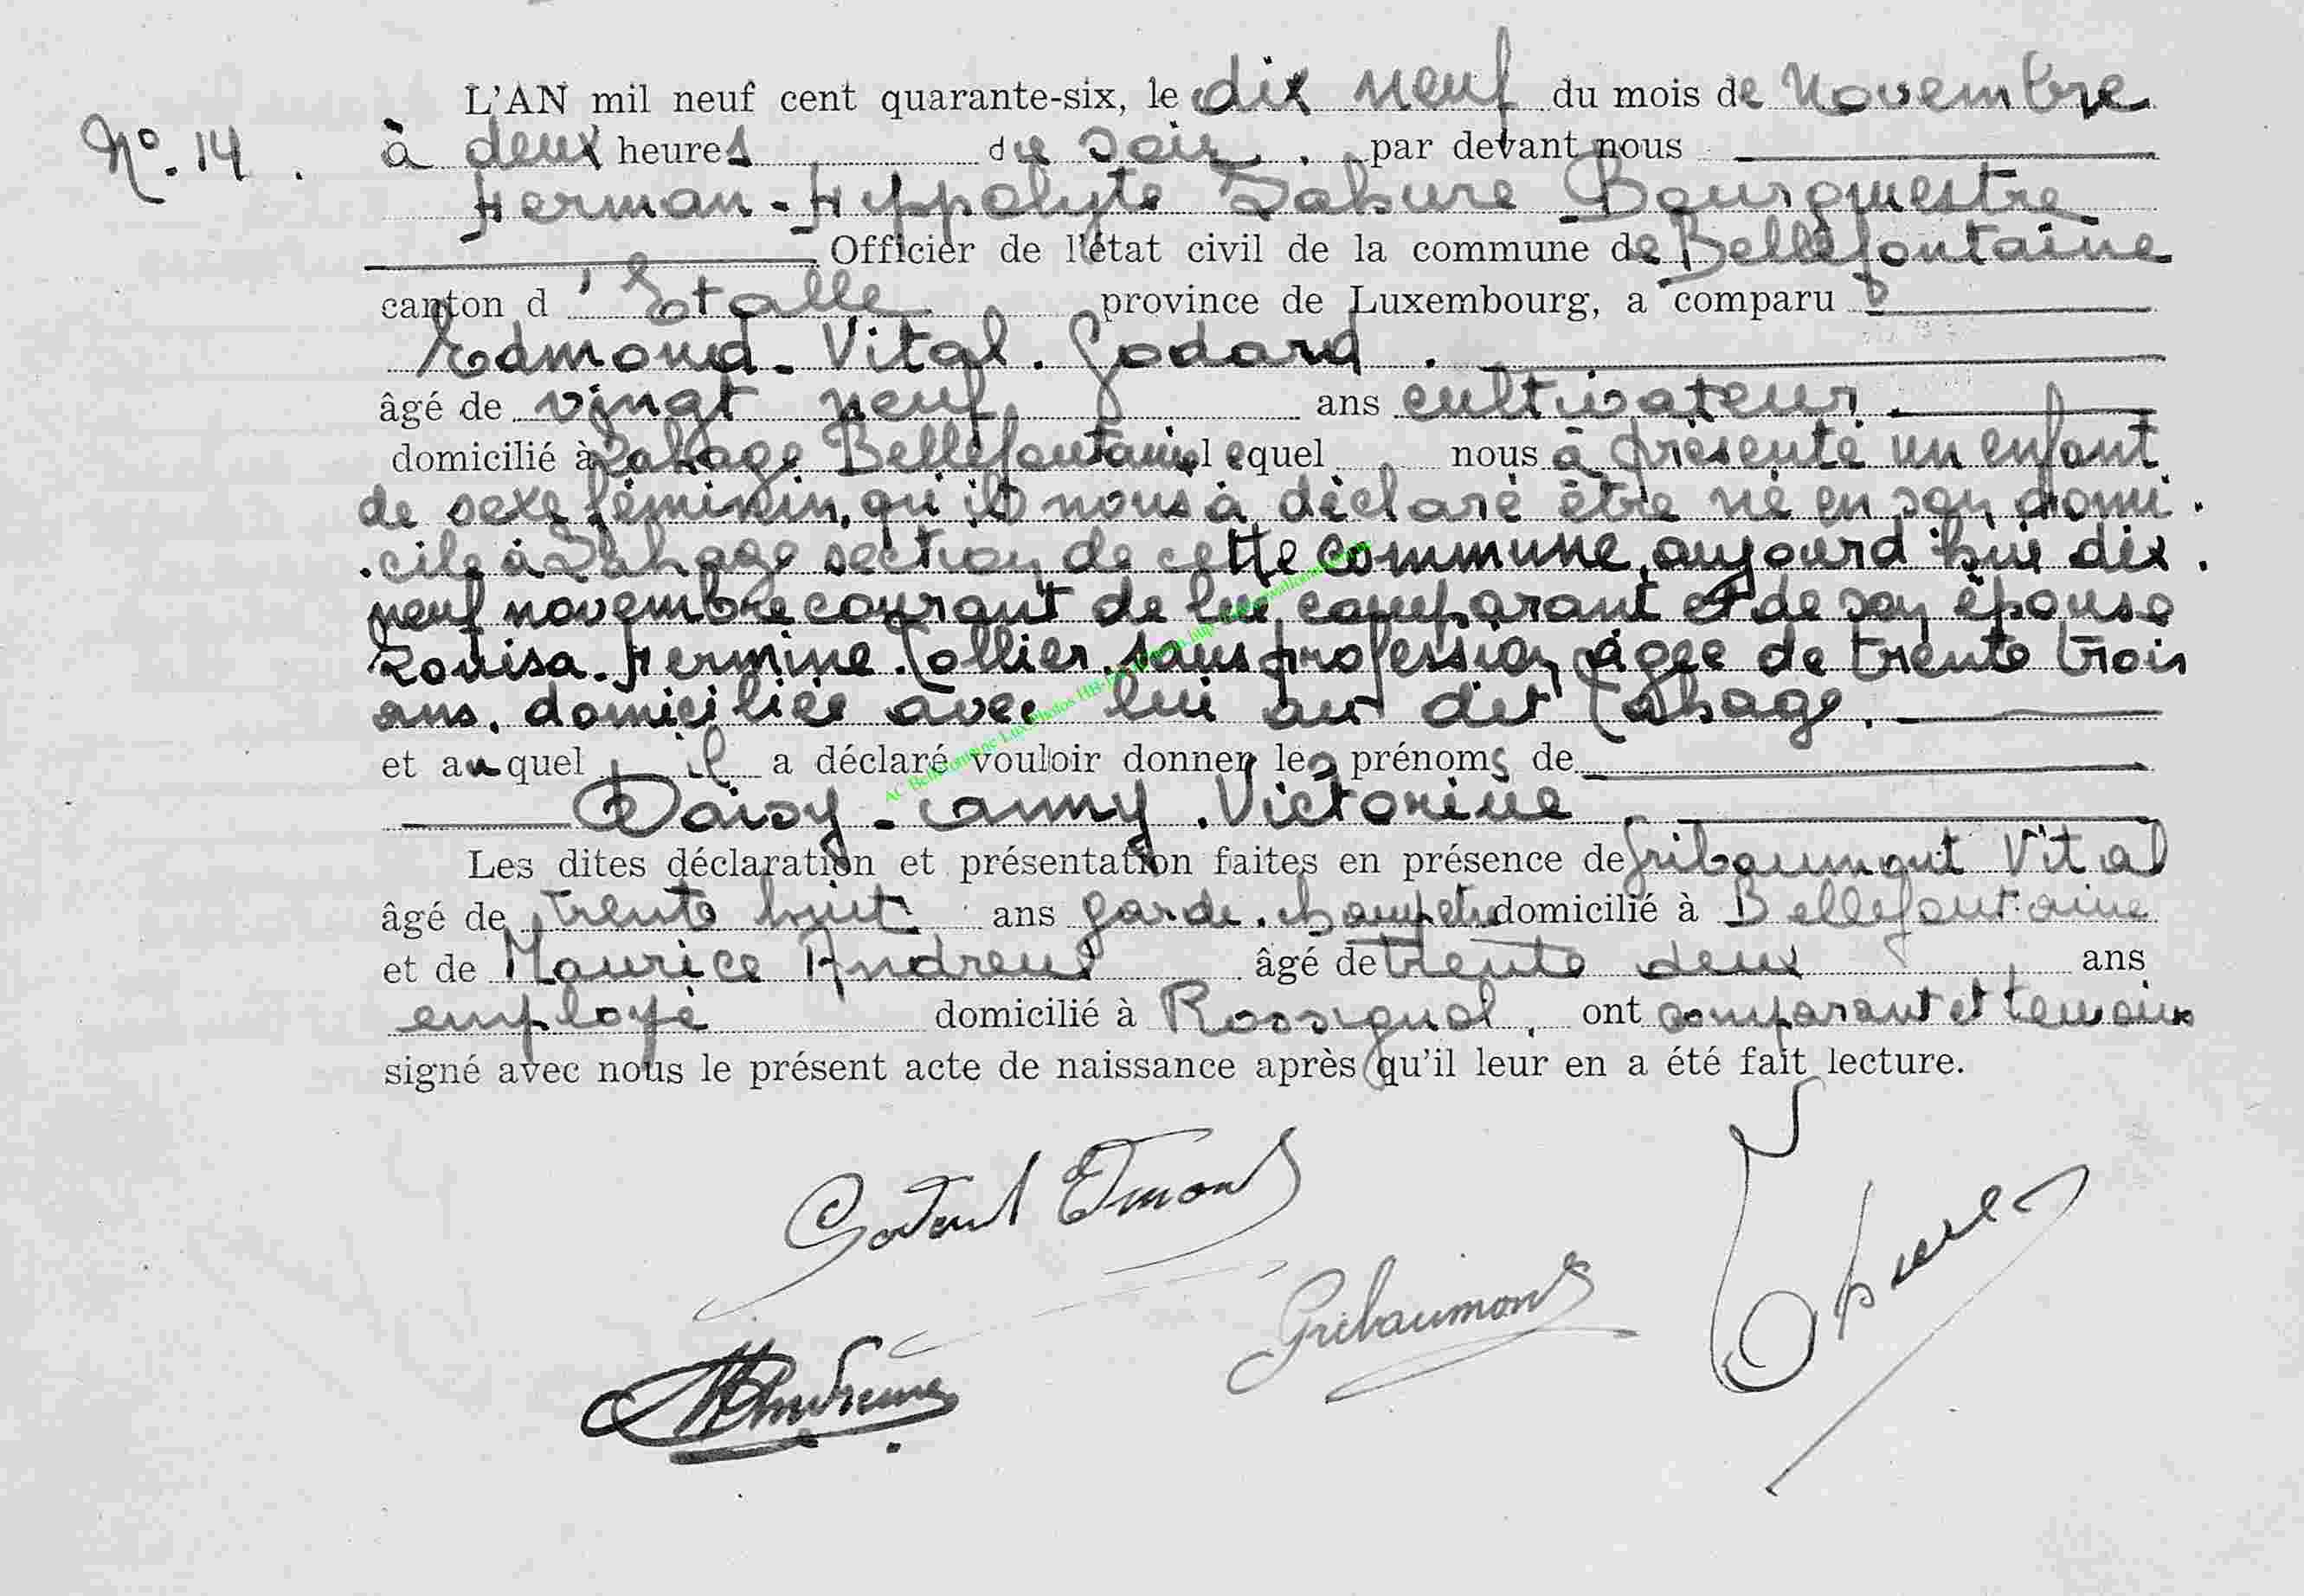 L'AN mil neuf cent quarante-six, le dix neuf du mois de Novembre
N°. 14. à deux heures du soir. par devant nous
Herman-Hippolyte Lahure Bourgmestre
Officier de l'état civil de la commune de Bellefontaine
canton d'Etalle province de Luxembourg, a comparu
Edmond-Vital. Godard.
âgé de vingt neuf ans cultivateur.
domicilié à Lahage Bellefontaine lequel nous à présenté un enfant
de sexe féminin, qu'il nous à déclaré être né en son domi.
.cile à Lahage section de cette commune, aujourd'hui dix.
neuf novembre courant de lui comparant et de son épouse
Louisa-Hermine. Collier. sans profession âgée de trente trois
ans. domiciliée avec lui au dit Lahage.
et auquel il a déclaré vouloir donner les prénoms de
Daisy-anny. Victorine
Les dites déclaration et présentation faites en présence de Gribaumont Vital
âgé de trente huit ans garde.champetre domicilié à Bellefontaine
et de Maurice Andreux âgé de trente deux ans
employé domicilié à Rossignol, ont comparant et temoins
signé avec nous le présent acte de naissance après qu'il leur en a été fait lecture.
Godard Edmond
Gribaumont